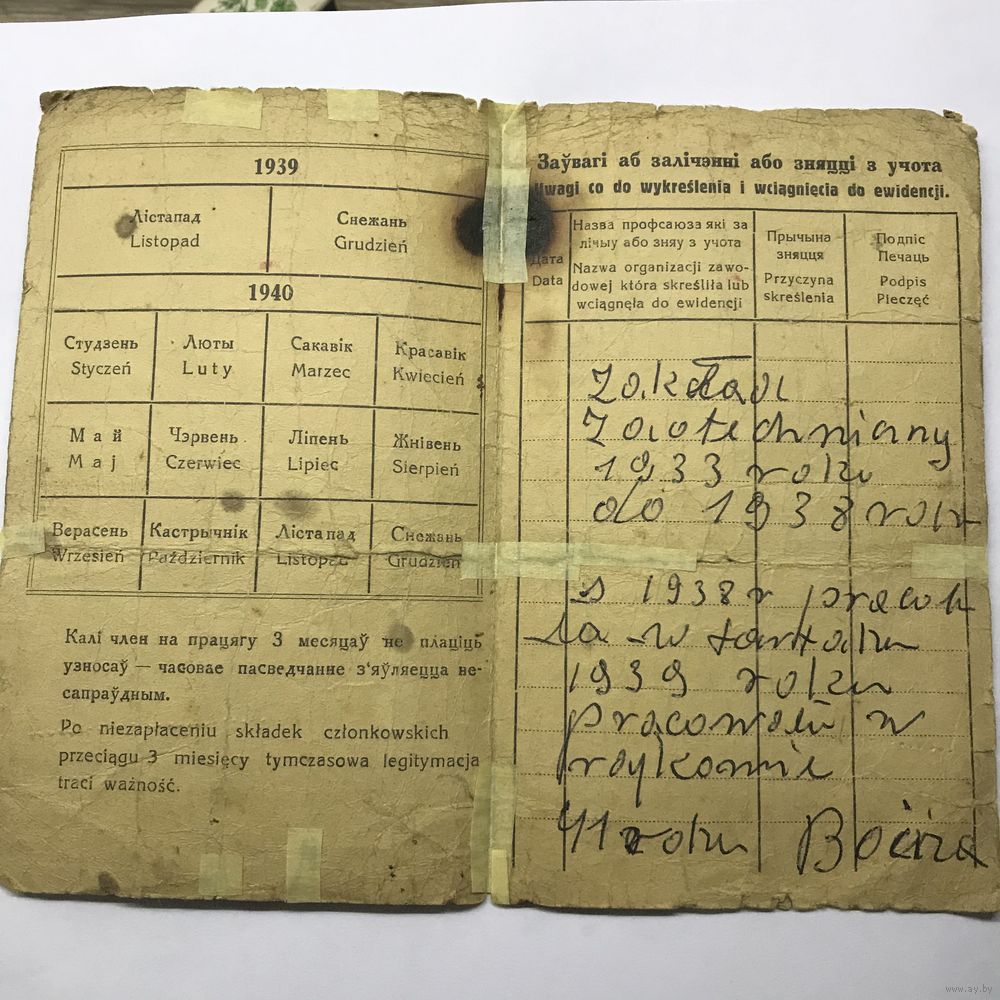 1939
Лістапад
Listopad
Снежань
Grudzień
1940
Студзень
Styczeń
Люты
Luty
Сакавік
Marzec
Красавік
Kwiecień
Май
Maj
Чэрвень
Czerwiec
Ліпень
Lipiec
Жнівень
Sierpień
Верасень
Wrzesień
Кастрычнік
Październik
Лістапад
Listopad
Снежань
Grudzień
Калі член на працягу 3 месяцаў не плаціць
узносаў — часовае пасведчанне з'яўляецца не-
сапраўдным.
Po niezapłaceniu składek członkowskich
przeciągu 3 miesięcy tymczasowa legitymacja
traci ważność.
Заўвагі аб залічэнні або зняцці з учота
Uwagi co do wykreślenia i wciągnięcia do ewidencji.
Дата
Data
Назва профсаюза які за
лічыу або зняу з учота
Nazwa organizacji zawo-
dowej która skreśliła lub
wciągnęła do ewidencji
Прычына
зняцця
Przyczyna
skreślenia
Подпіс
Печаць
Podpis
Pieczęć
Zakład
Zootechniany
1933 roku
do 1938 roku
1938 r
w tartaku
1939 roku
w
41 roku
www.ay.by